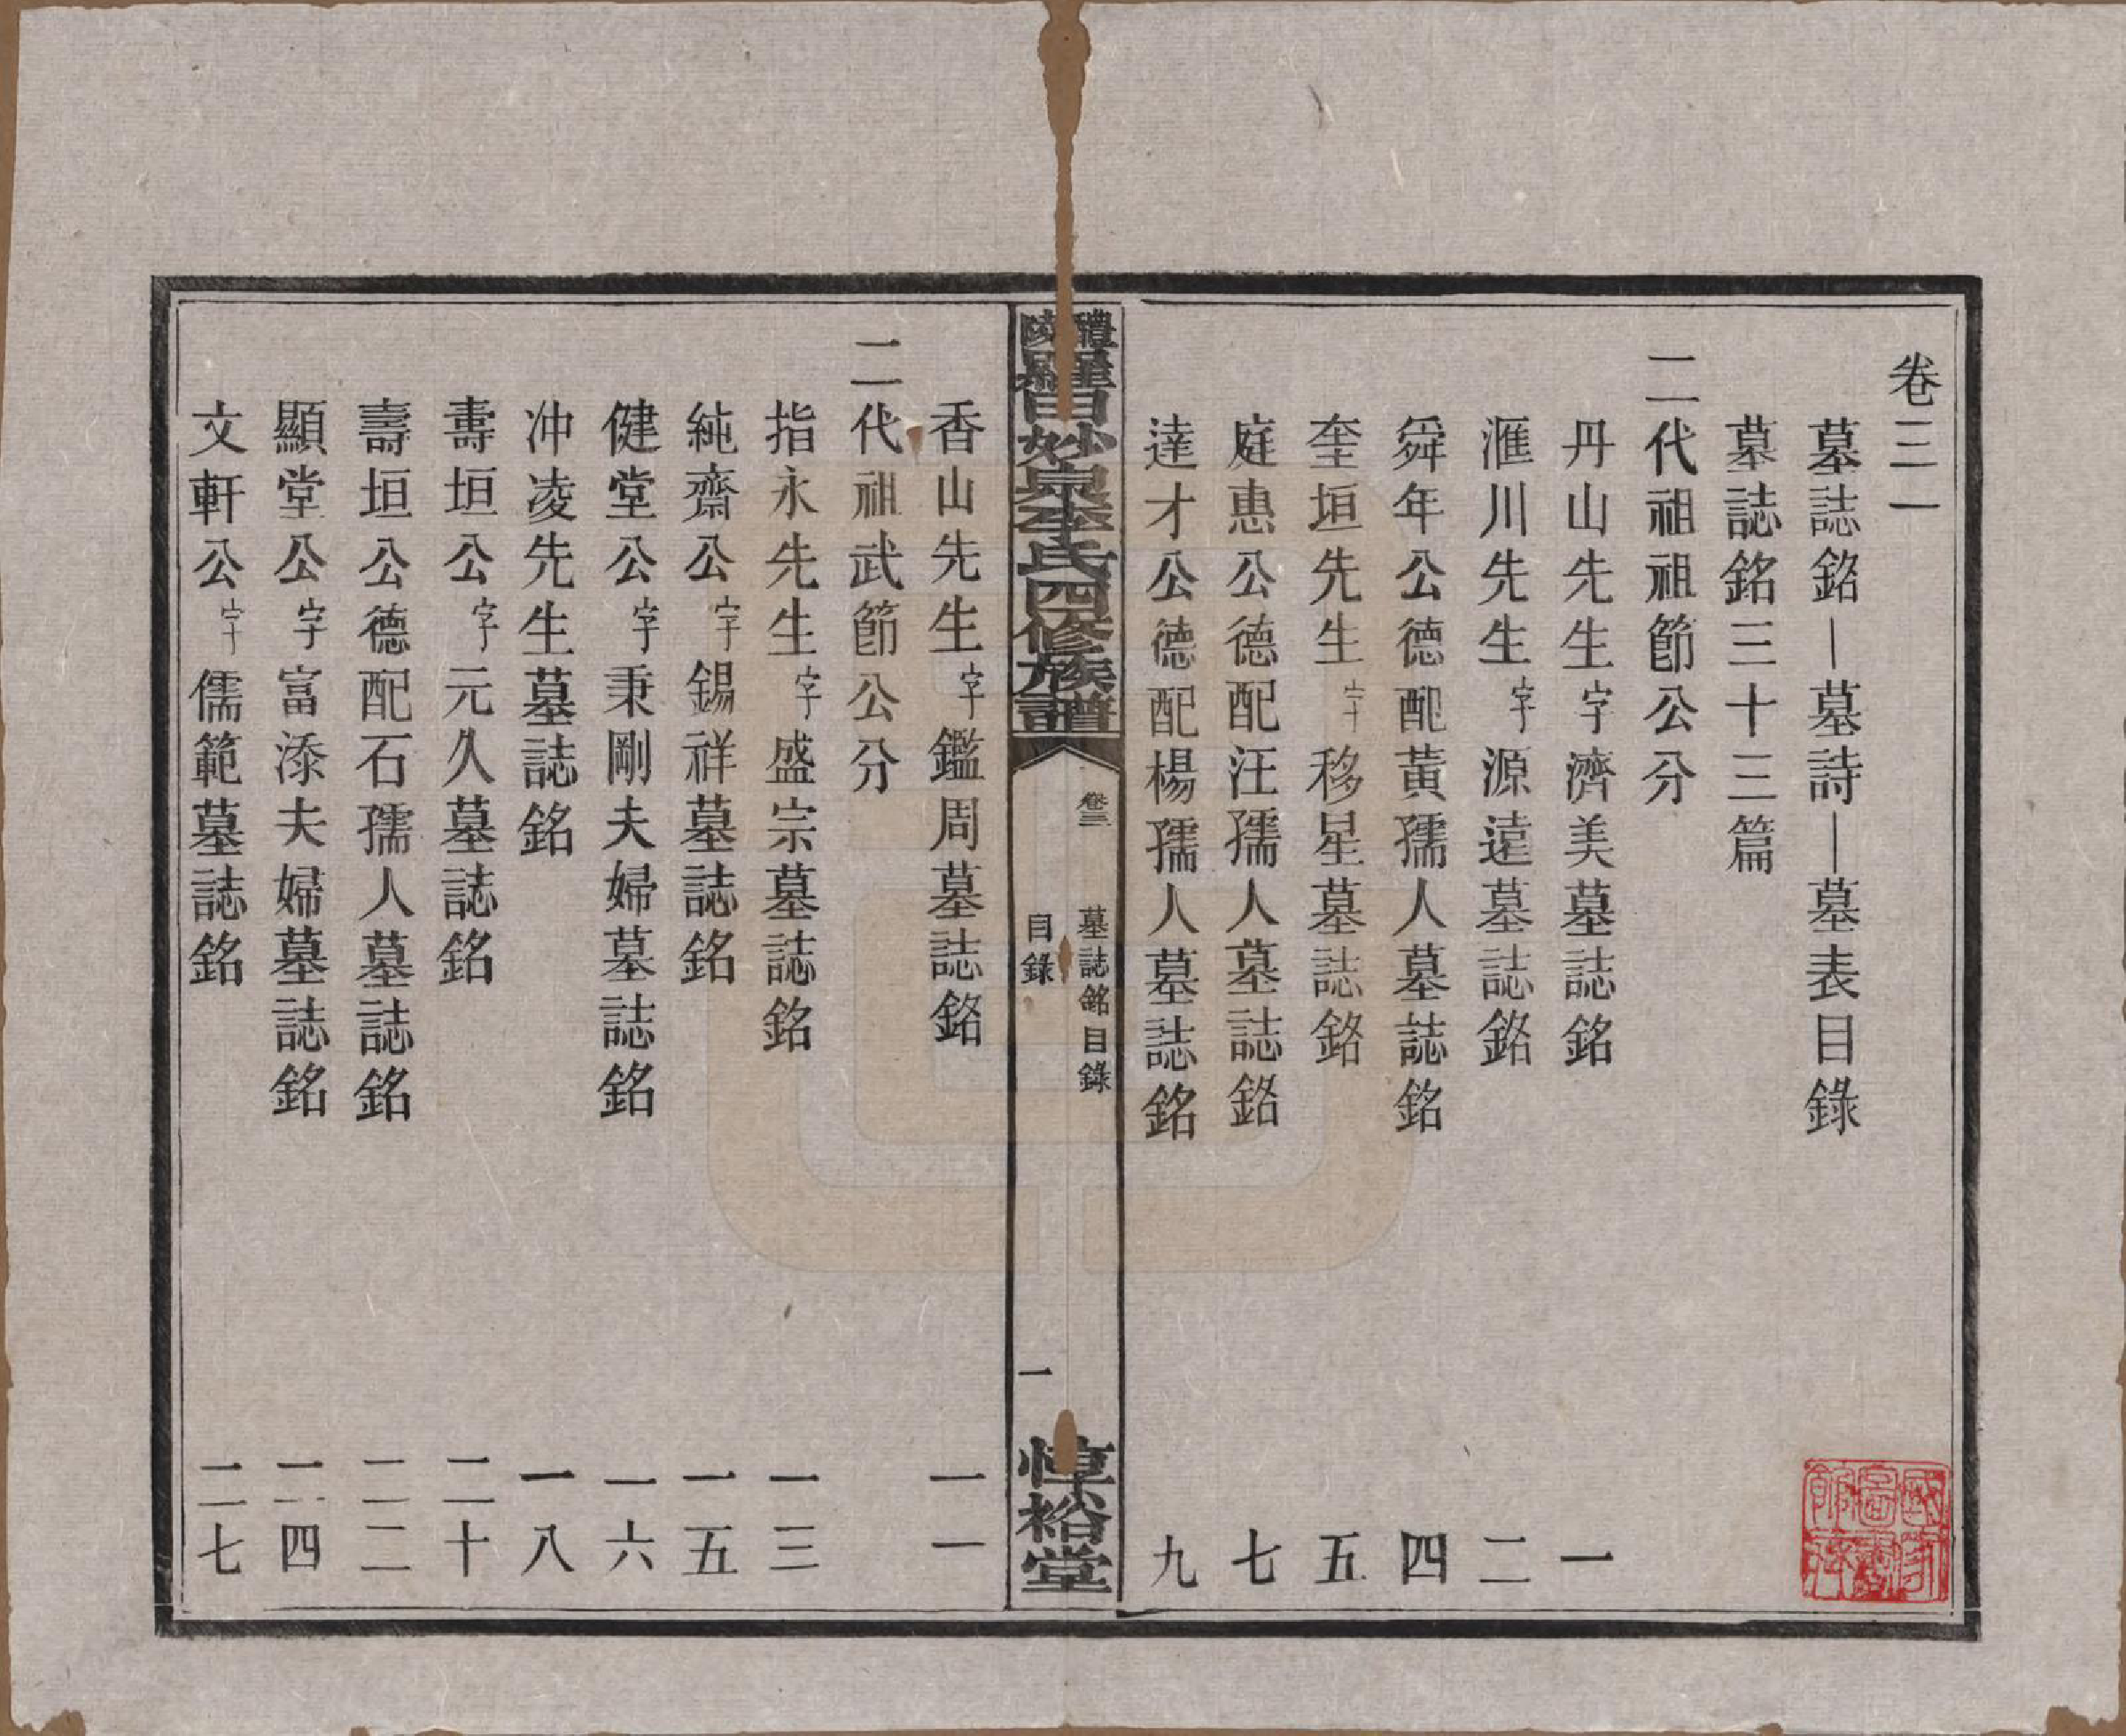 卷三一
墓誌銘—墓詩—墓表目錄
墓誌銘三十三篇
二代祖祖節公分
丹山先生字濟美墓誌銘 一
滙川先生字源遠墓誌銘 二
舜年公德配黃孺人墓誌銘 四
奎垣先生字移星墓誌銘 五
庭惠公德配汪孺人墓誌銘 七
達才公德配楊孺人墓誌銘 九
醴陵羅田妙泉李氏四修族譜
卷三
墓誌銘目錄
目錄
一
惇裕堂
香山先生字鑑周墓誌銘 一一
二代祖武節公分
指永先生字盛宗墓誌銘 一三
純齋公字錫祥墓誌銘 一五
健堂公字秉剛夫婦墓誌銘 一六
冲凌先生墓誌銘 一八
壽垣公字元久墓誌銘 二十
壽垣公德配石孺人墓誌銘 二二
顯堂公字富添夫婦墓誌銘 二四
文軒公字儒範墓誌銘 二七
國家圖書館藏